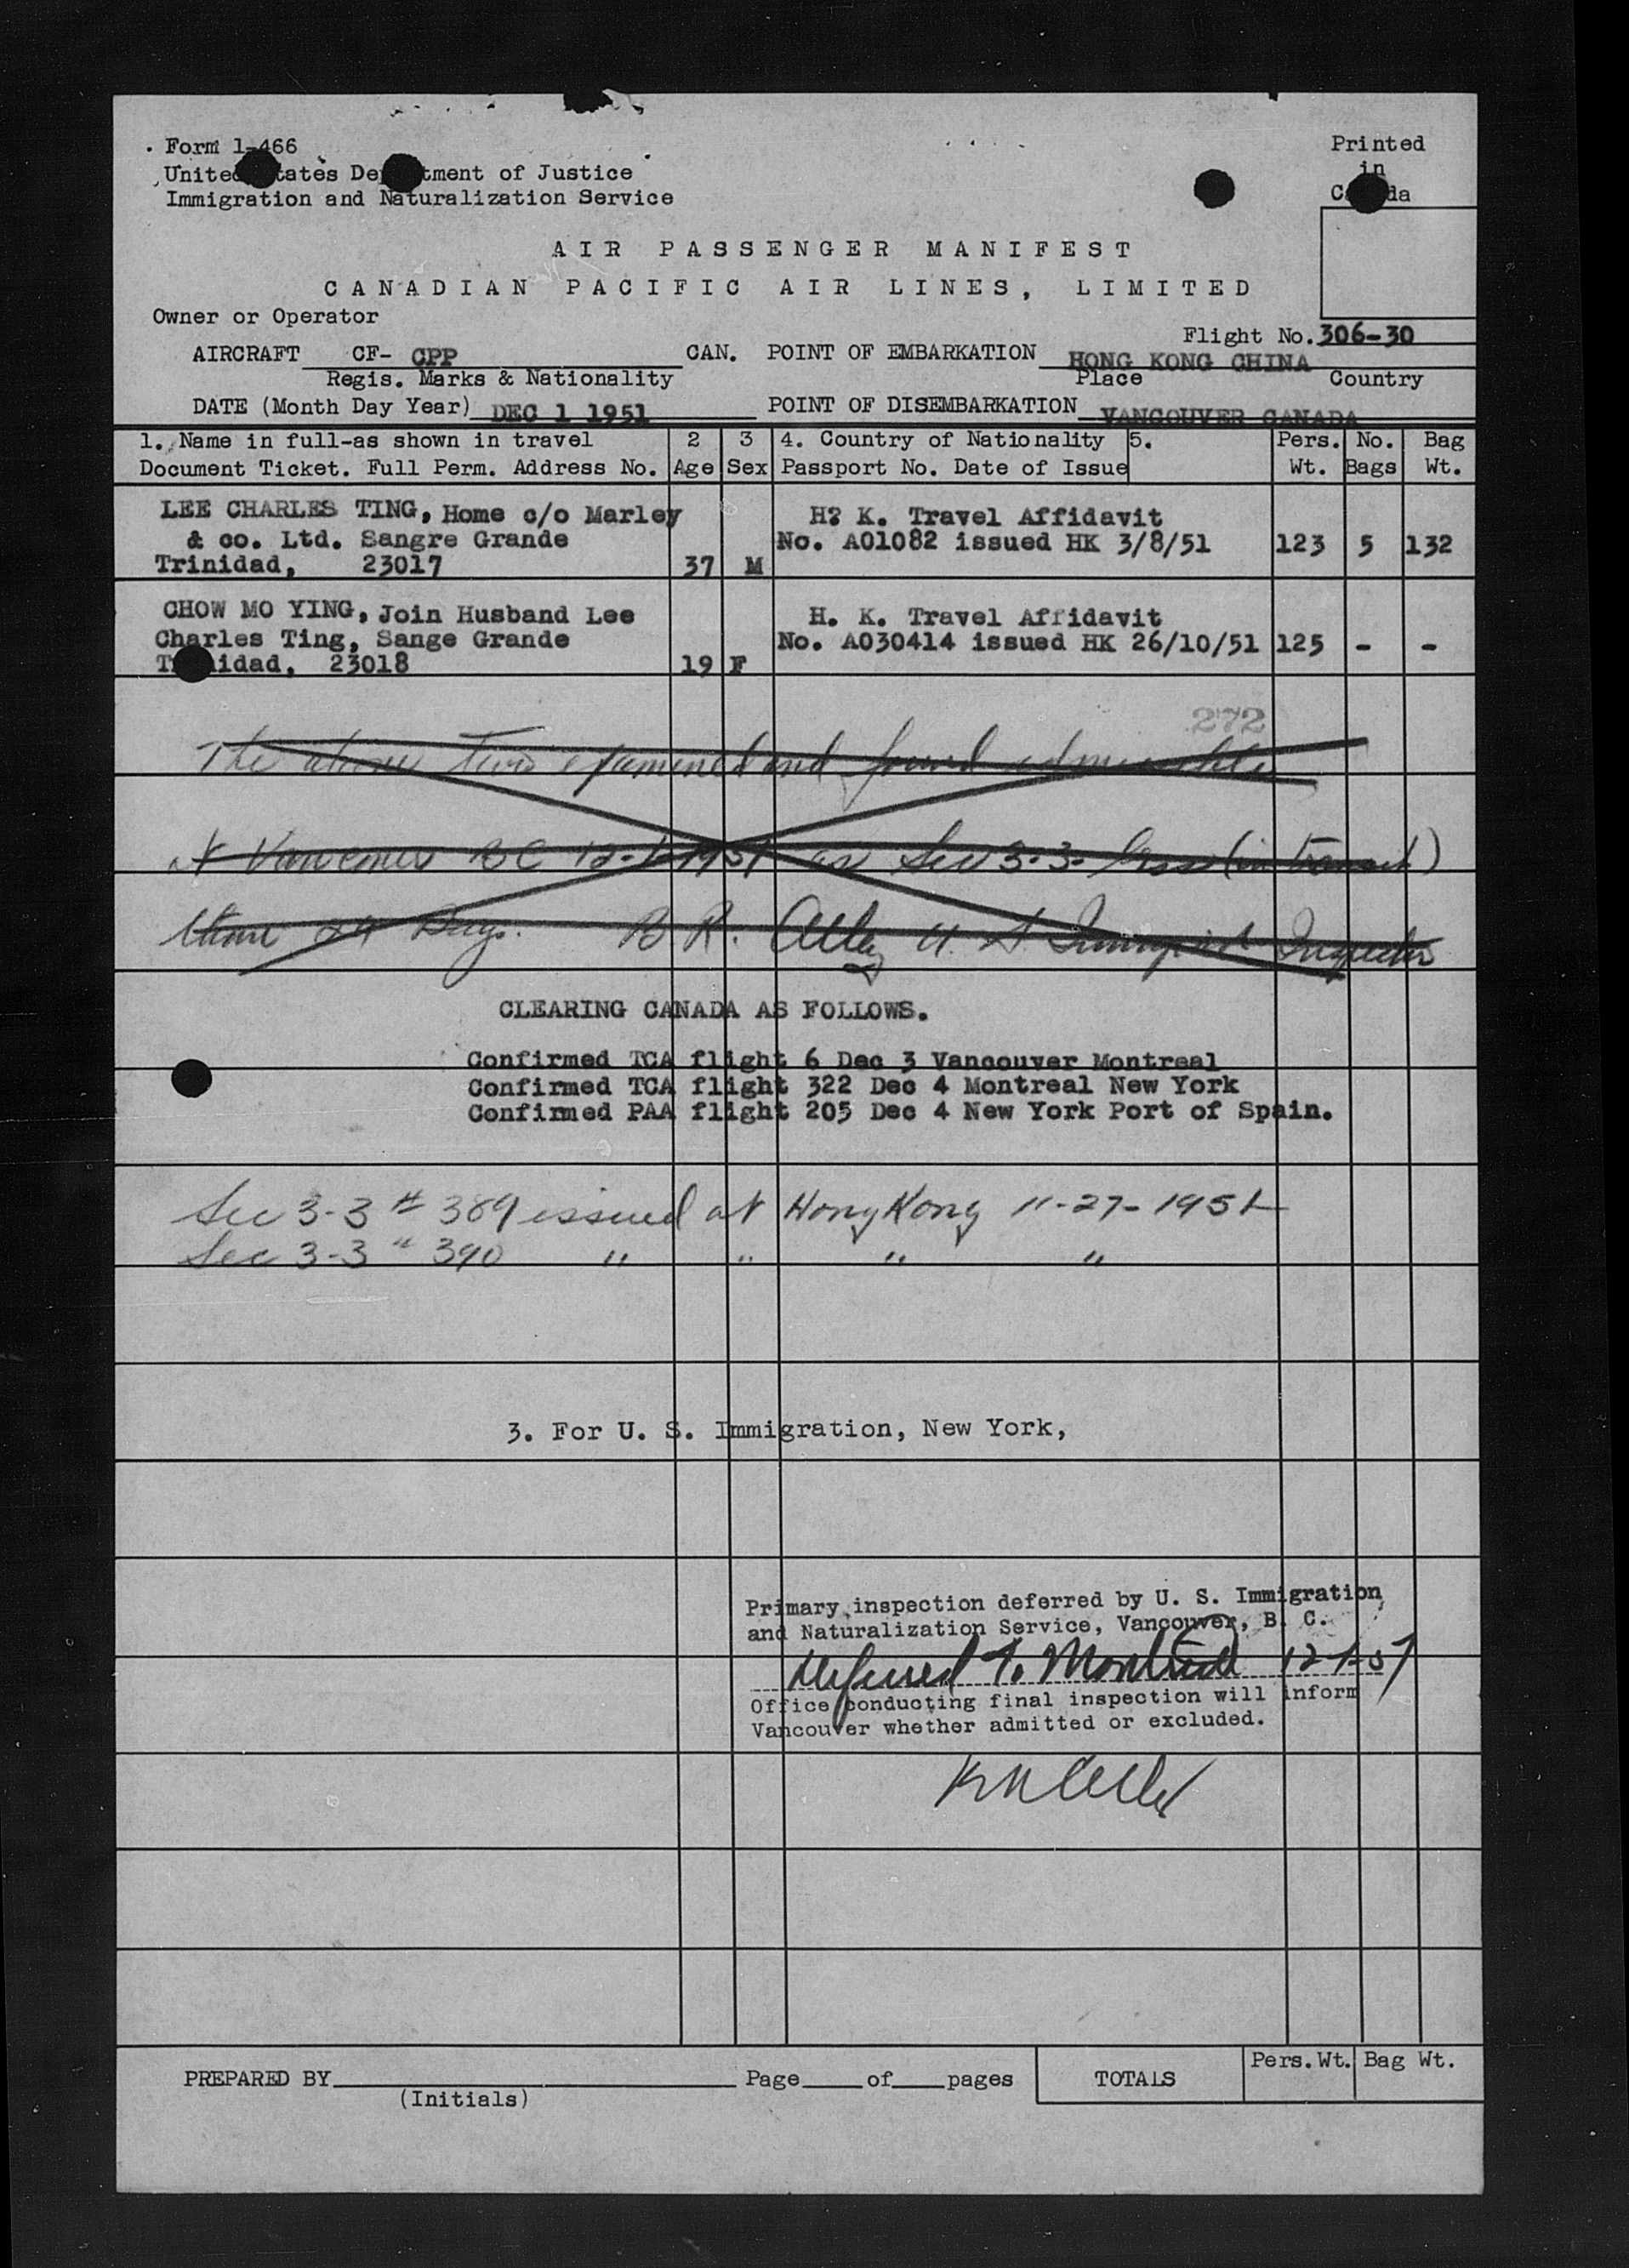 Form 1-466
Printed
in
Canada
United States Department of Justice
Immigration and Naturalization Service
AIR PASSENGER MANIFEST
CANADIAN PACIFIC AIR LINES, LIMITED
Owner or Operator
Flight No. 306-30
AIRCRAFT CF- CPP CAN. POINT OF EMBARKATION HONG KONG CHINA
Regis. Marks & Nationality Place Country
DATE (Month Day Year) DEC 1 1951 POINT OF DISEMBARKATION VANCOUVER CANADA
1. Name in full-as shown in travel 2 3 4. Country of Nationality 5. Pers. No. Bag
Document Ticket. Full Perm. Address No. Age Sex Passport No. Date of Issue Wt. Bags Wt.
LEE CHARLES TING, Home c/o Marley H? K. Travel Affidavit
& co. Ltd. Sangre Grande No. A01082 issued HK 3/8/51 123 5 132
Trinidad, 23017 37 M
CHOW MO YING, Join Husband Lee H. K. Travel Affidavit
Charles Ting, Sange Grande No. A030414 issued HK 26/10/51 125 - -
Trinidad, 23018 19 F
272
The above two examined and found admissible
at Vancouver BC 12-1-1951 as Sec 3-3- less (in transit)
than 29 Days. B R. Alley U S Immigrant Inspector
CLEARING CANADA AS FOLLOWS.
Confirmed TCA flight 6 Dec 3 Vancouver Montreal
Confirmed TCA flight 322 Dec 4 Montreal New York
Confirmed PAA flight 205 Dec 4 New York Port of Spain.
Sec 3-3 # 389 issued at Hong Kong 11-27-1951
Sec 3-3 " 390 " " " "
3. For U. S. Immigration, New York,
Primary inspection deferred by U. S. Immigration
and Naturalization Service, Vancouver, B. C.
Deferred to Montreal 12-1-51
Office conducting final inspection will inform
Vancouver whether admitted or excluded.
PREPARED BY Page of pages TOTALS Pers.Wt. Bag Wt.
(Initials)